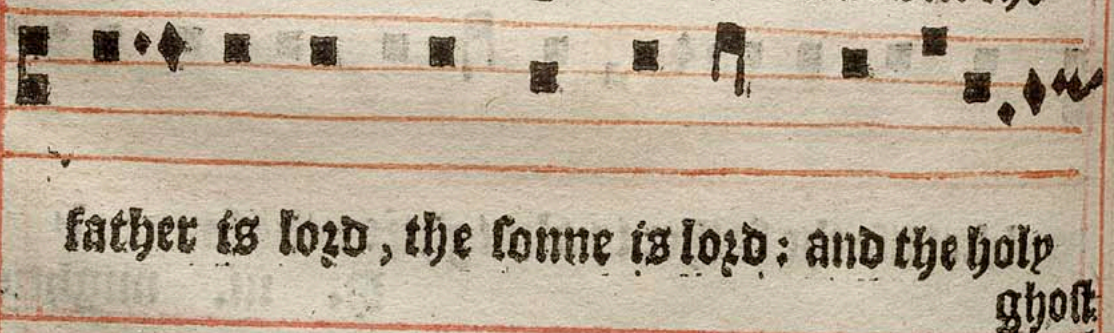 father is lord, the ſonne is lord: and the holy
ghoſt